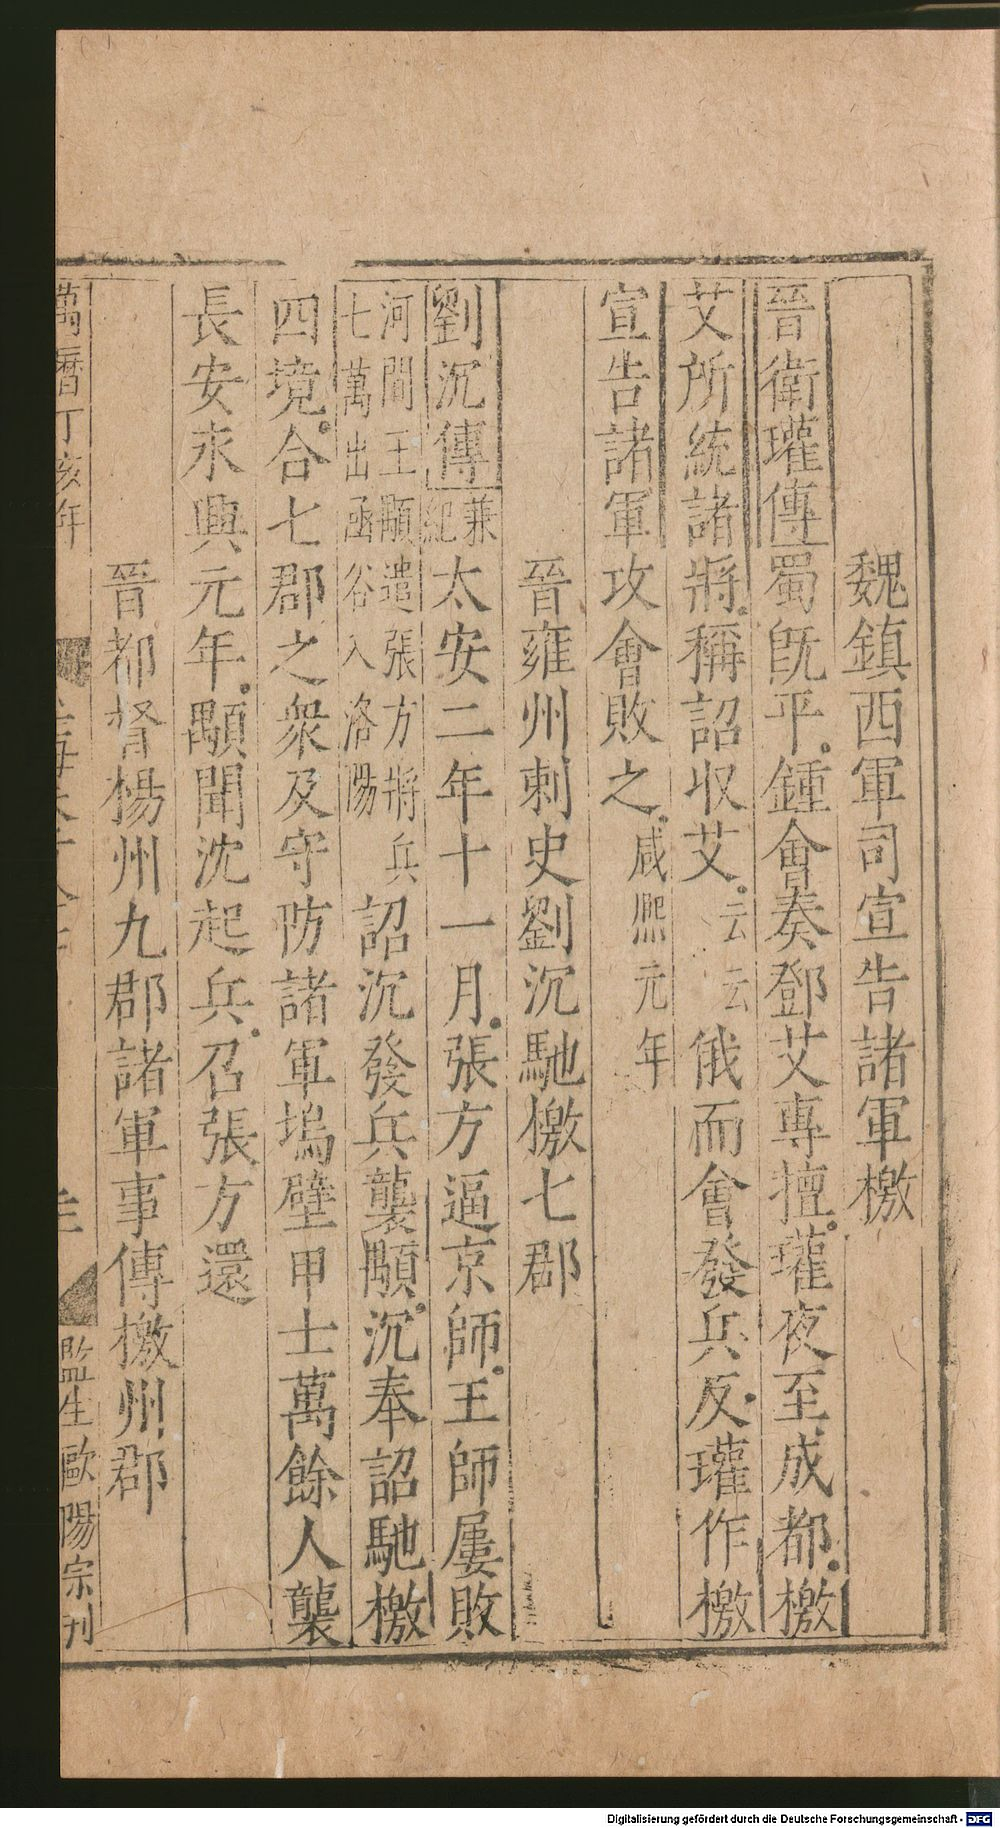 魏鎮西軍司宣告諸軍檄
晉衛瓘傳蜀旣平。鍾會奏鄧艾專擅。瓘夜至成都。檄
艾所統諸將。稱詔収艾。云云俄而會發兵反。瓘作檄
宣告諸軍攻會敗之。咸熙元年
晉雍州刺史劉沉馳檄七郡
劉沉傳兼紀太安二年十一月。張方逼京師。王師屢敗
河間王顒遣張方將兵七萬出函谷入洛陽詔沉發兵襲顒。沉奉詔馳檄
四境。合七郡之衆及守防諸軍塢壁甲士萬餘人襲
長安永興元年。顒聞沈起兵。召張方還
晉都督楊州九郡諸軍事傳檄州郡
萬曆丁亥年
監生歐陽宗刊
Digitalisierung gefördert durch die Deutsche Forschungsgemeinschaft - DFG